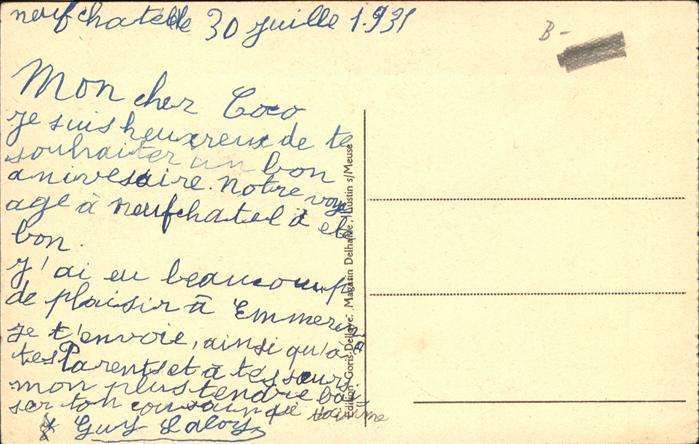 neufchatelle 30 juille 1.931
B-
Mon cher Coco
je suis heuxreux de te
souhaiter un bon
anivesaire. Notre voy
age a neufchatel à etè
bon.
J'ai eu beaucoup
de plaisir à Emmeri
je t'envoie, ainsi qu'a
tes Parents et à tes sœurs
mon plus tendre bai
ser ton cousin qui
Guy Laloy
Edition Goris-Delloye, Magasin Delhaize, Lustin s/Meuse